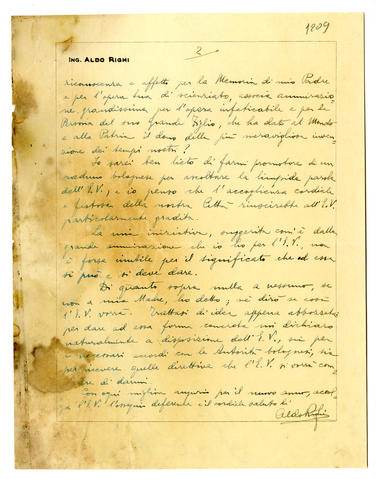 1809
2
ING. ALDO RIGHI
riconoscenza e affetto per la Memoria di mio Padre
e per l'opera sua di scienziato, associa ammirazio
ne grandissima per l'opera infaticabile e per la
Persona del suo Grande Figlio, che ha dato al Mondo
e alla Patria il dono della più meravigliosa inven
zione dei tempi nostri?
Io sarei ben lieto di farmi promotore di un
raduno bolognese per ascoltare la limpida parola
dell'E.V., e io penso che l'accoglienza cordiale
e festosa della nostra Città riuscirebbe all'E.V.
particolarmente gradita.
La mia iniziativa, suggerita com'è dalla
grande ammirazione che io ho per l'E.V., non
è forse inutile per il significato che ad essa
si può e si deve dare.
Di quanto sopra nulla a nessuno, se
non a mia Madre, ho detto; nè dirò se così
l'E.V. vorrà. Trattasi di idea appena abbozzata
per dare ad essa forma concreta mi dichiaro
naturalmente a disposizione dell'E.V., sia per
i necessari accordi con le Autorità bolognesi, sia
per ricevere quelle direttive che l'E.V. si vorrà com
di darmi.
Con ogni migliore augurio per il nuovo anno,
l'E.V. l'ossequio deferente e il cordiale saluto di
Aldo Righi